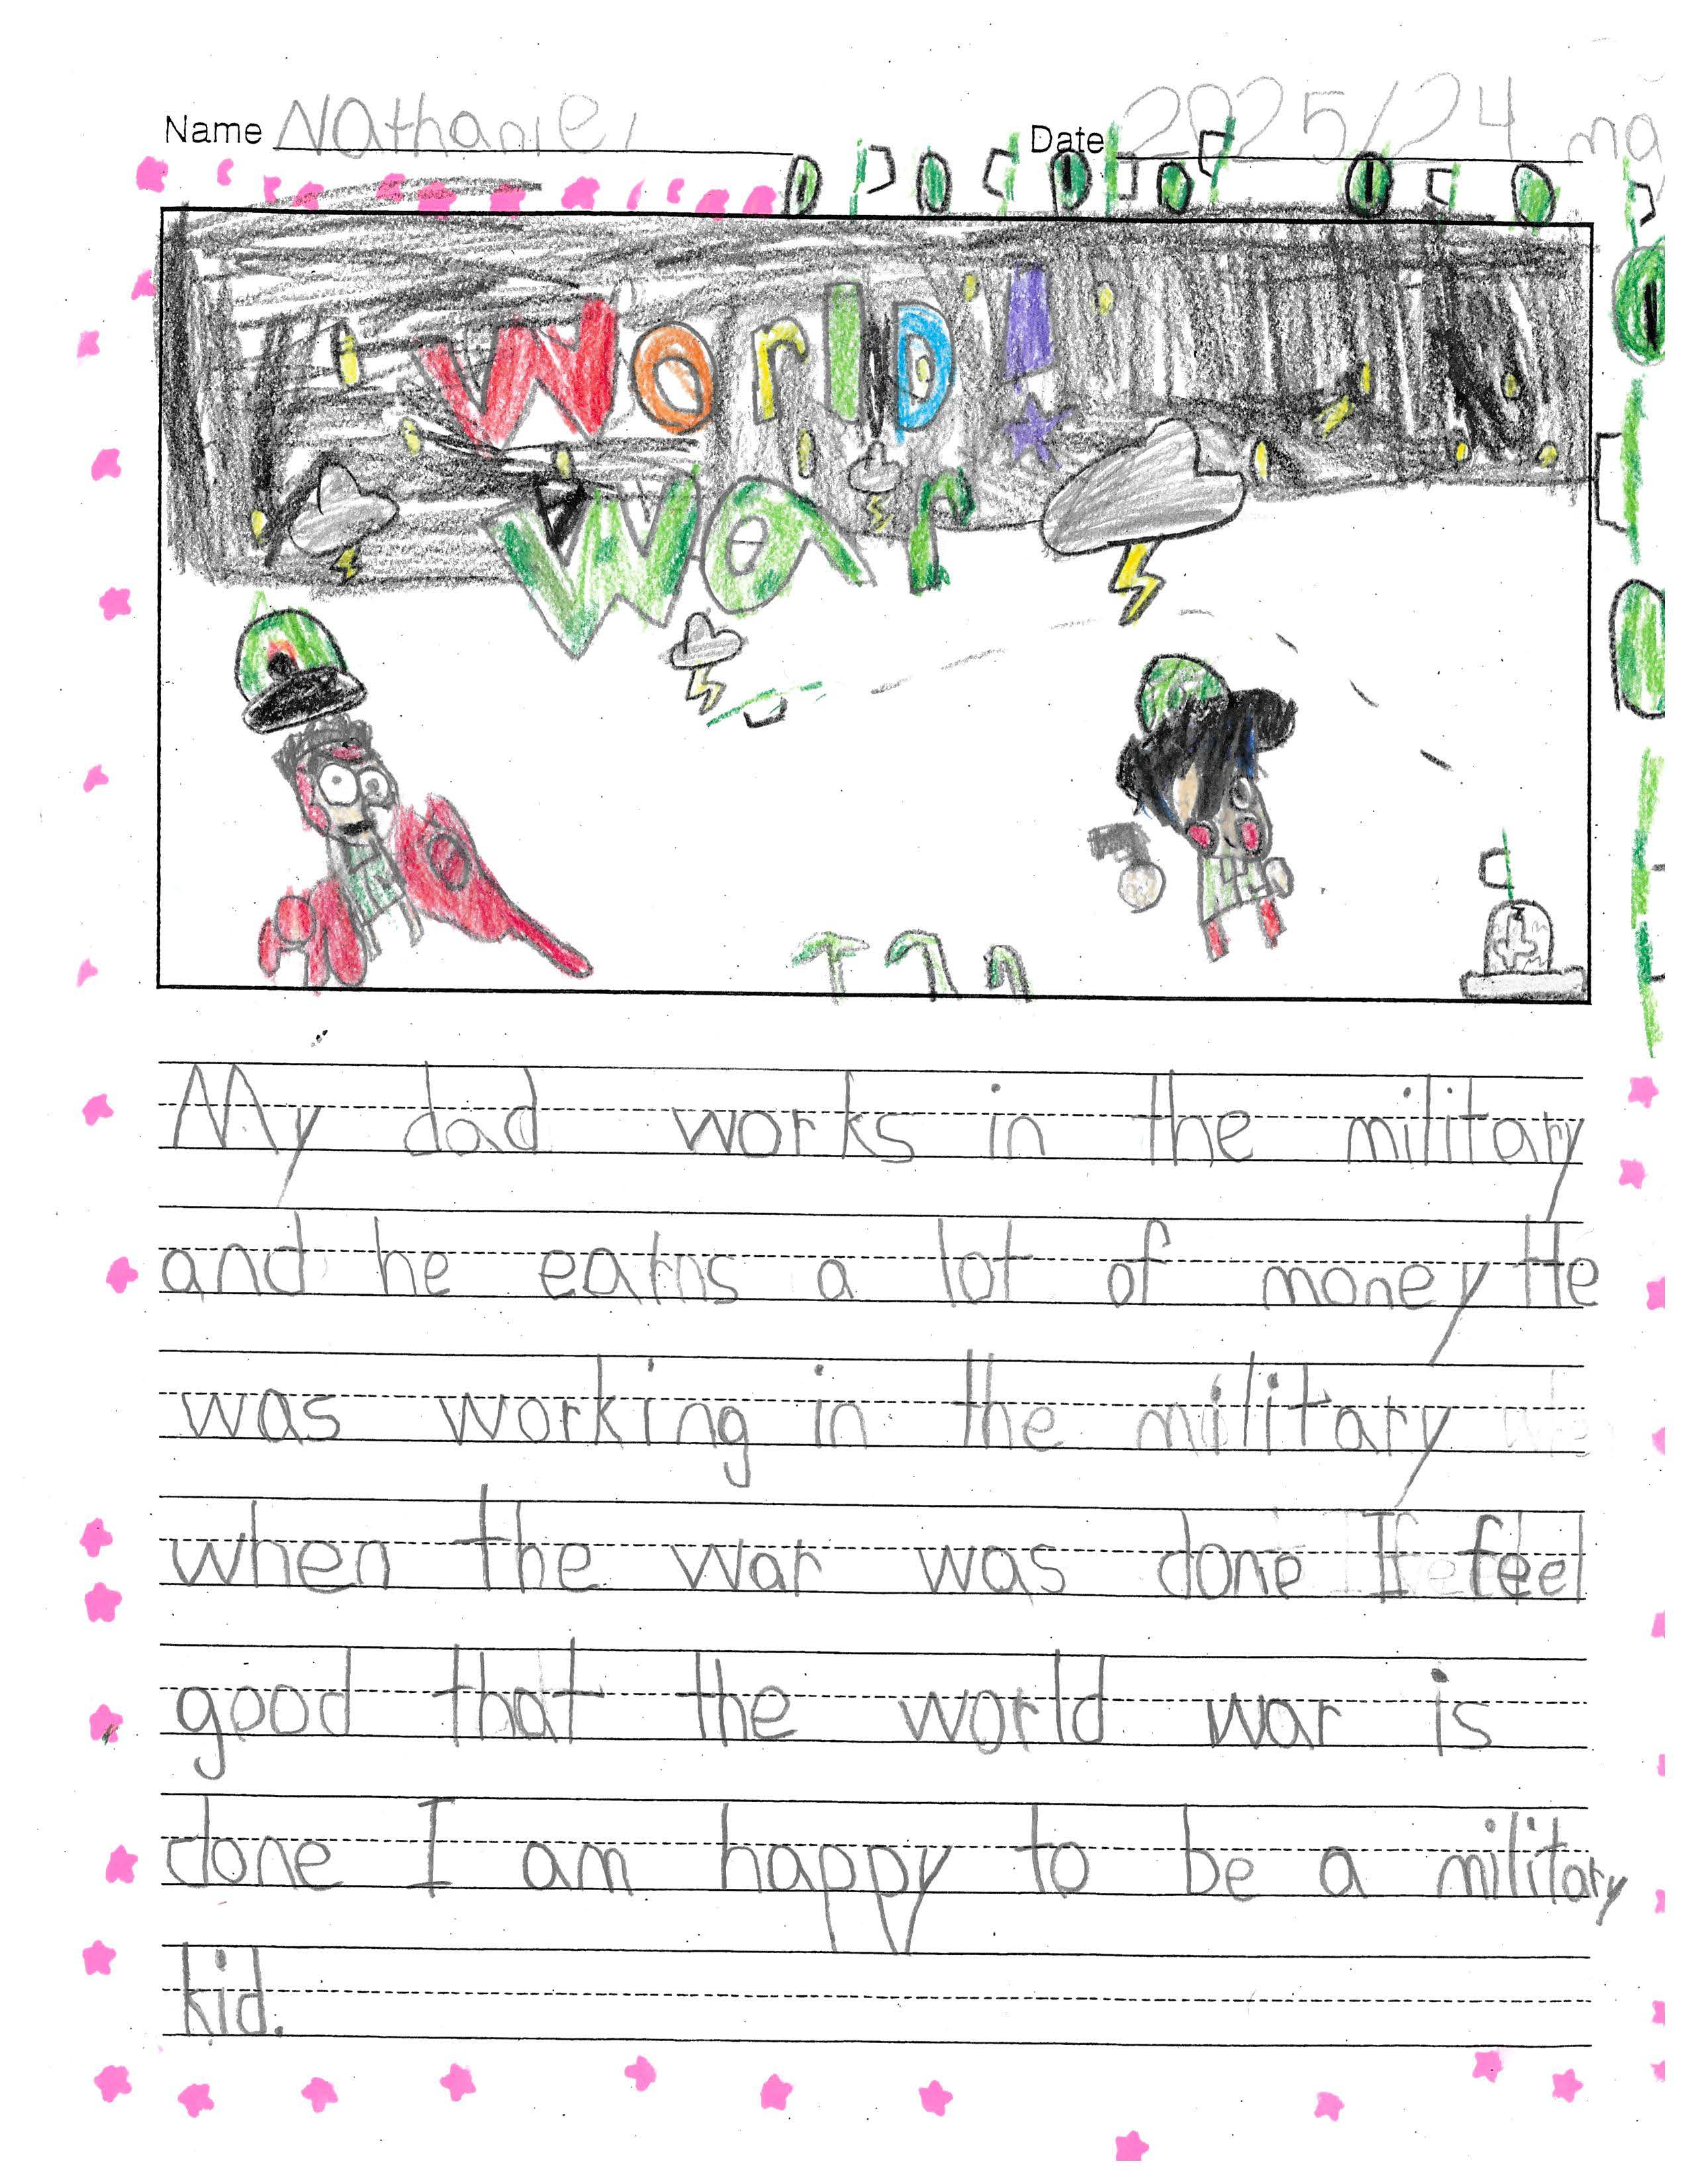 Name Nathaniel Date 2025/24 ma
World!
War
My dad works in the military
and he earns a lot of money He
was working in the military
when the war was done I feel
good that the world war is
done I am happy to be a military
kid.